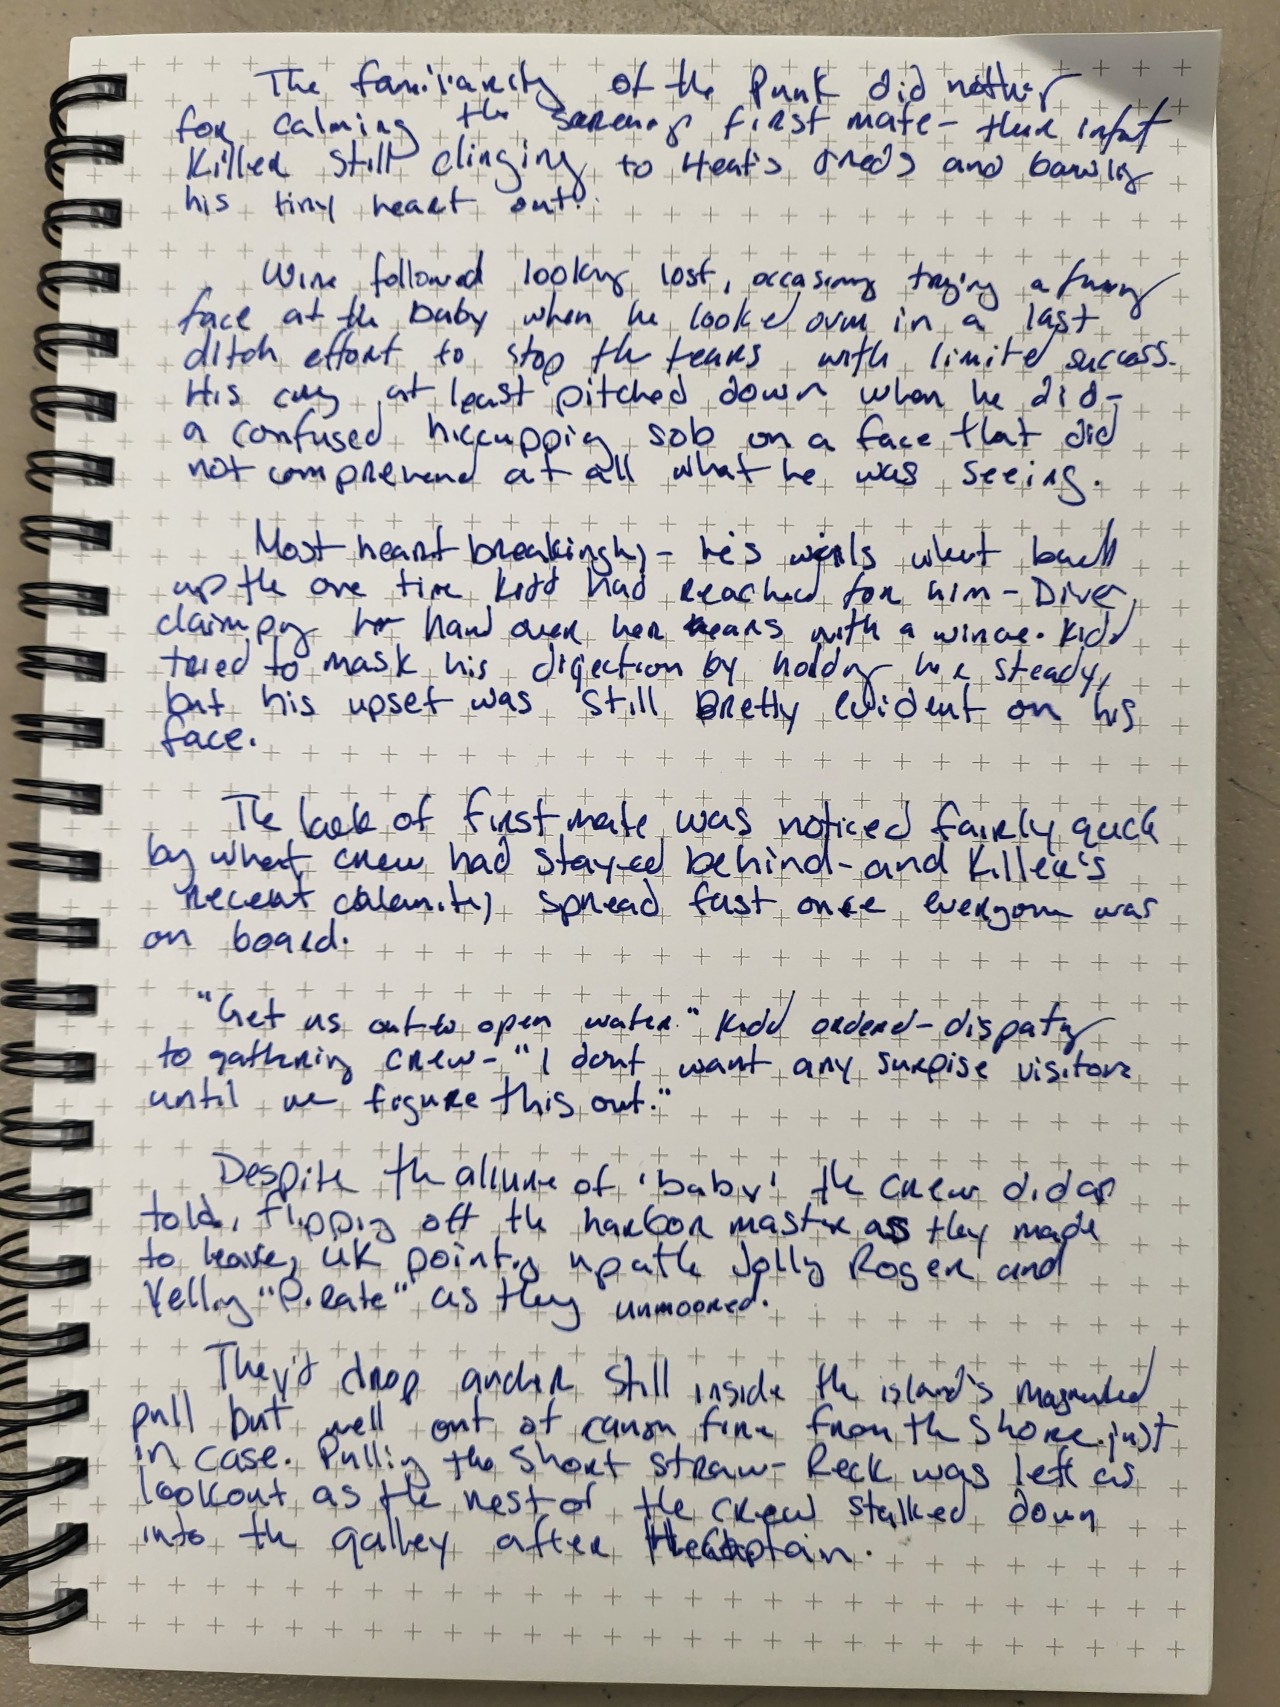 The familiarity of the Punk did nothing
for calming the first mate - their infant
Killer still clinging to Heat's dreds and bawling
his tiny heart out.
Wire followed looking lost, trying a funny
face at the baby when he looked over in a last
ditch effort to stop the tears with limited success.
His cry at least pitched down when he did -
a confused hiccupping sob on a face that did
not comprehend at all what he was seeing.
Most heart breakingly - he's wails went back
up the one time Kidd had reached for him - Dive
clamping her hand over her ears with a wince. Kidd
tried to mask his dijection by holding her steady,
but his upset was still pretty evident on his
face.
The lack of first mate was noticed fairly quick
by what crew had stayed behind - and Killer's
recent calamity spread fast once everyone was
on board.
"Get us out to open water." Kidd ordered -
to gathering crew - "I dont want any surpise visitors
until we figure this out."
Despite the allure of 'baby' the crew did as
told, flipping off the harbor master as they made
to leave, UK pointing up at the Jolly Roger and
Yelling "Pirate" as they unmoored.
They'd drop anchor still inside the island's
pull but well out of canon fire from the shore just
in case. Pulling the short straw - Reck was left as
lookout as the rest of the crew stalked down
into the galley after the Captain.